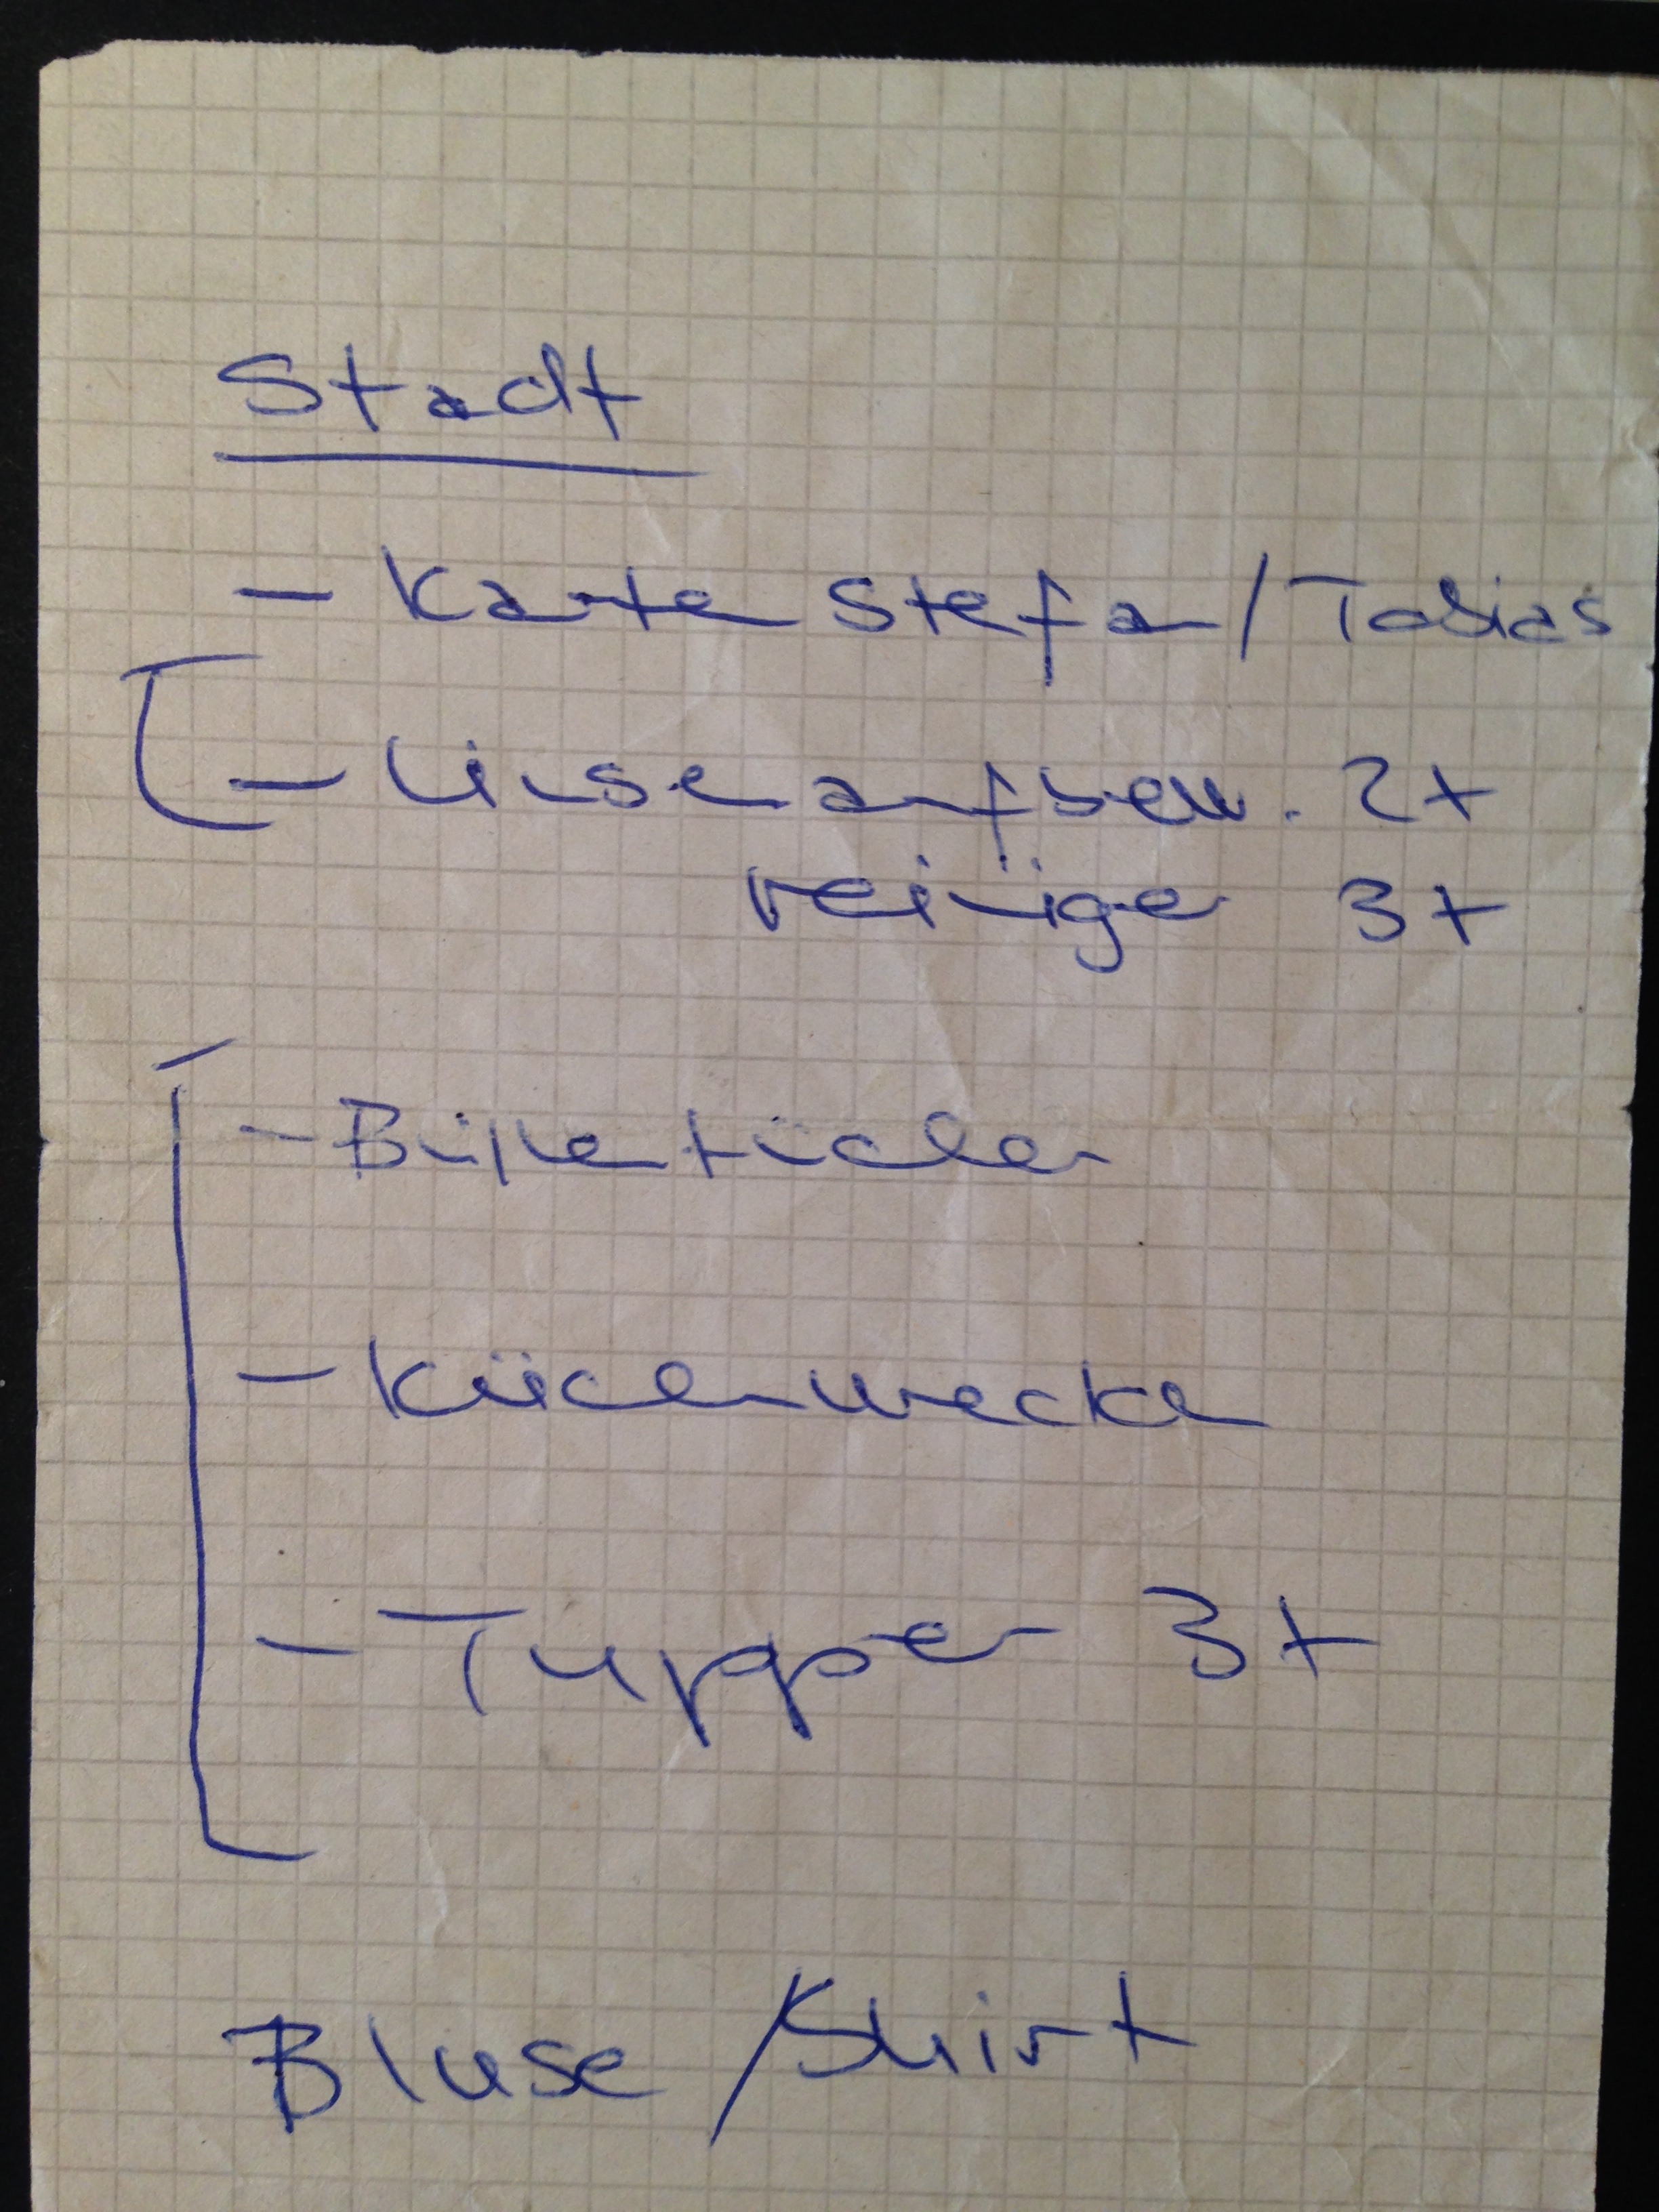 Stadt
- Karte Stefan/Tobias
- Linsen aufbew. 2x
reinige 3x
- Brillentücher
- Küchenwecker
- Tupper 3x
Bluse/Shirt